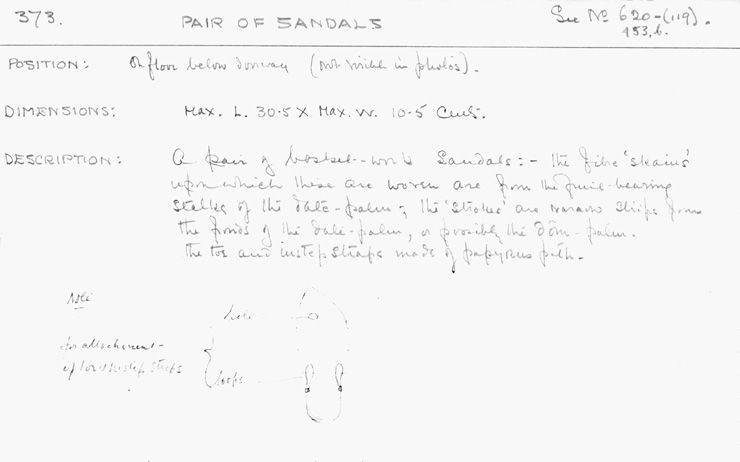 373.
PAIR OF SANDALS
See No 620-(119).
453,b.
POSITION: On floor below doorway (not visible in photos).
DIMENSIONS: Max. L. 30.5 X Max. W. 10.5 Cms.
DESCRIPTION: A pair of basket-work Sandals:- the fibre 'skains'
upon which these are woven are from the fruit-bearing
stalks of the date-palm; the 'strokes' are narrow strips from
the fronds of the date-palm, or possibly the dôm-palm.
The toe and instep straps made of papyrus pith.
Note
hole
for attachment
of toe & instep straps
loops